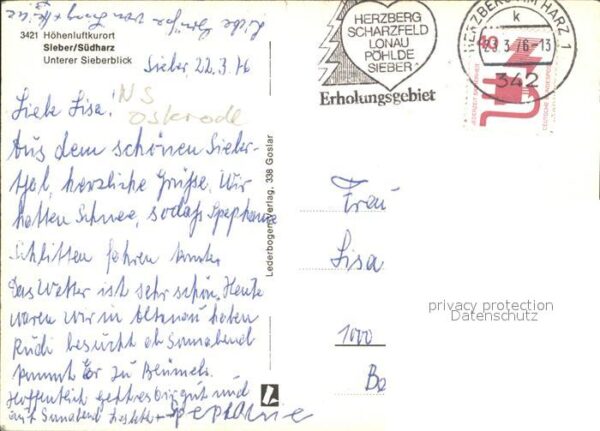 Liebe Grüße von
3421 Höhenluftkurort
Sieber/Südharz
Unterer Sieberblick
Sieber 22.3.76
Liebe Lisa!
NS
Osterode
Aus dem schönen Sieber-
tal, herzliche Grüße. Wir
hatten Schnee, sodaß Stephanie
Schlitten fahren konnte
Das Wetter ist sehr schön. Heute
waren wir in Altenau haben
Rudi besucht ab Sonnabend
kommt Er zu Blümels.
Hoffentlich geht es dir gut und
auf Sonnabend
HERZBERG
SCHARZFELD
LONAU
PÖHLDE
SIEBER
Erholungsgebiet
HERZBERG AM HARZ 1
k
23.3.76-13
342
40
Lederbogen Verlag, 338 Goslar
Frau
Lisa
1000
Be
privacy protection
Datenschutz